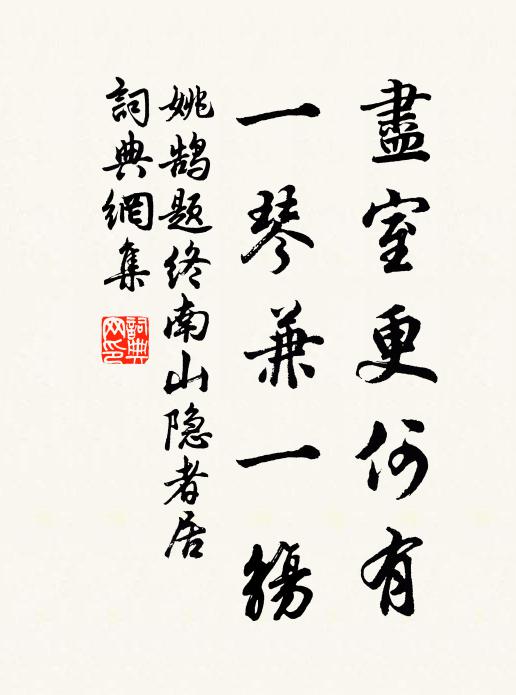 盡室更何有
一琴兼一觴
姚鵠题终南山隐者居
詞典網集
詞典網印